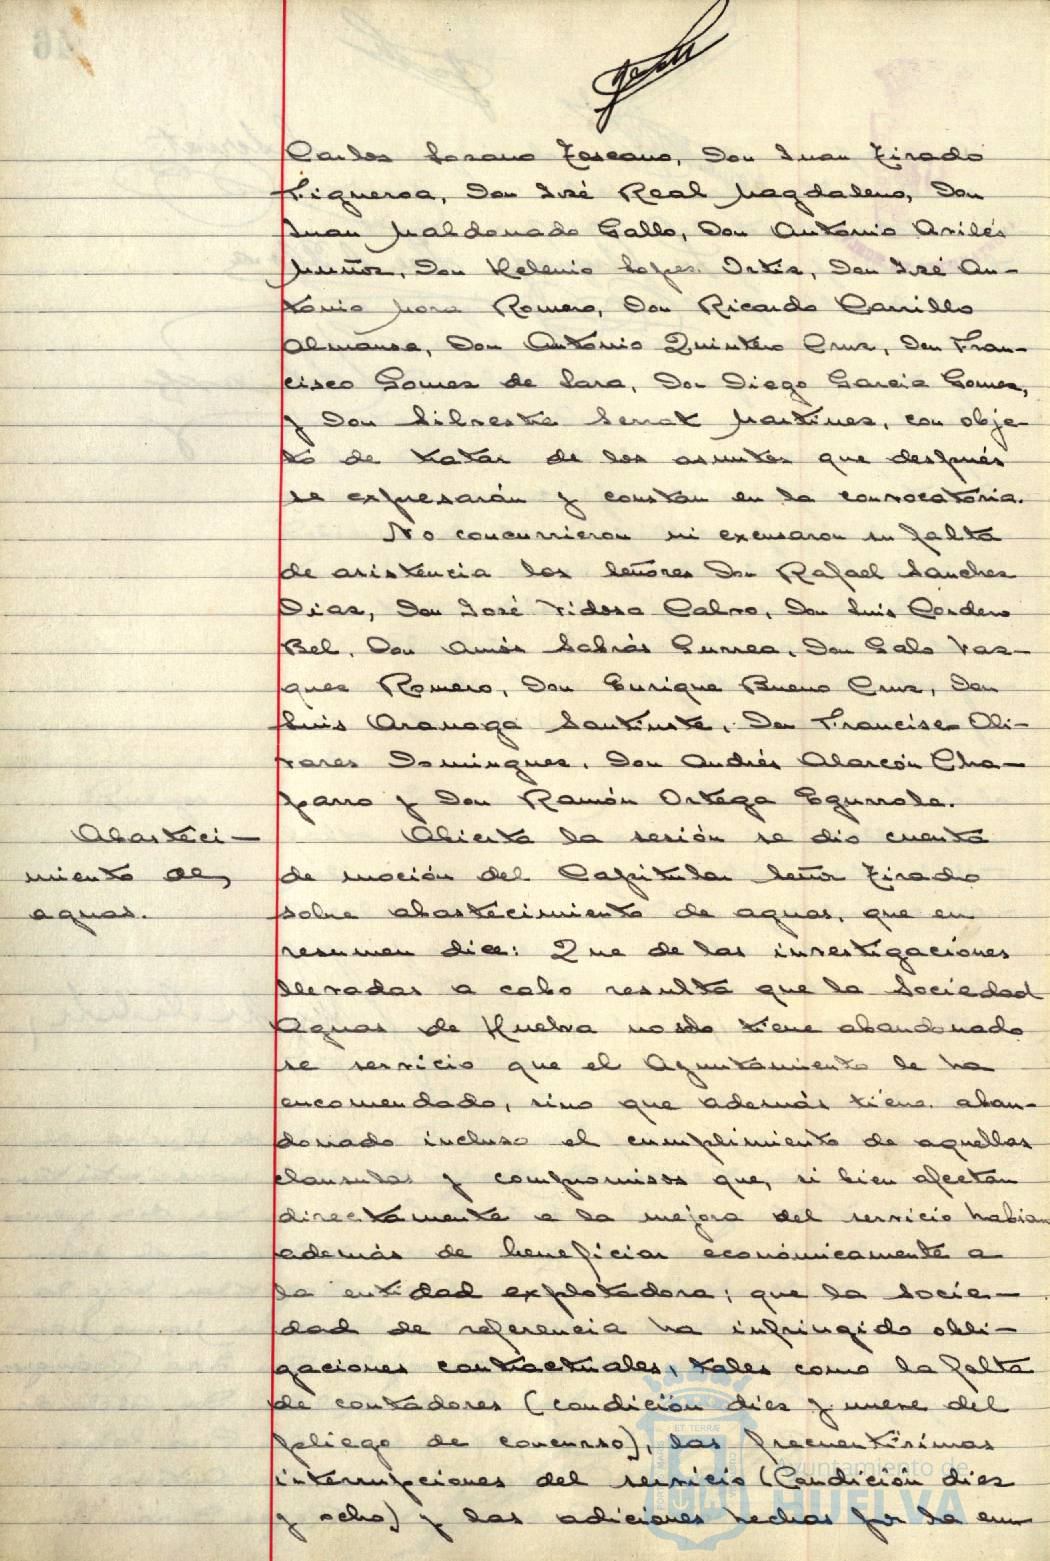 Carlos Lozano Toscano, Don Juan Tirado
Figueroa, Don José Real Magdaleno, Don
Juan Maldonado Gallo, Don Antonio Avilés
Muñoz, Don Helenio Lopez Ortiz, Don José An-
tonio Mora Romero, Don Ricardo Carrillo
Almansa, Don Antonio Quintero Cruz, Don Fran-
cisco Gomez de Lara, Don Diego Garcia Gomez,
y Don Silvestre Serrat Martinez, con obje-
to de tratar de los asuntos que después
se expresarán y constan en la convocatoria.
No concurrieron ni excusaron su falta
de asistencia los Señores Don Rafael Sanchez
Diaz, Don José Vidosa Calvo, Don Luis Cordero
Bel, Don Amós Sabrás Gurrea, Don Galo Vaz-
quez Romero, Don Enrique Bueno Cruz, Don
Luis Don Francisco Oli-
vares Dominguez, Don Andrés Alarcón Cha-
parro y Don Ramón Ortega Egurrola.
Abasteci-
miento de
aguas.
Abierta la sesión se dio cuenta
de moción del Capitular Señor Tirado
sobre abastecimiento de aguas, que en
resumen dice: Que de las investigaciones
llevadas a cabo resulta que la Sociedad
Aguas de Huelva no solo tiene abandonado
se servicio que el Ayuntamiento le ha
encomendado, sino que además tiene aban-
donado incluso el cumplimiento de aquellas
clausulas y compromisos que, si bien afectan
directamente a la mejora del servicio habian
además de beneficiar económicamente a
la entidad explotadora; que la Socie-
dad de referencia ha infringido obli-
gaciones contractuales, tales como la falta
de contadores (condición diez y nueve del
pliego de concurso), las frecuentísimas
interrupciones del servicio (Condición diez
y ocho) y las adiciones hechas por la em-
Ayuntamiento de
HUELVA